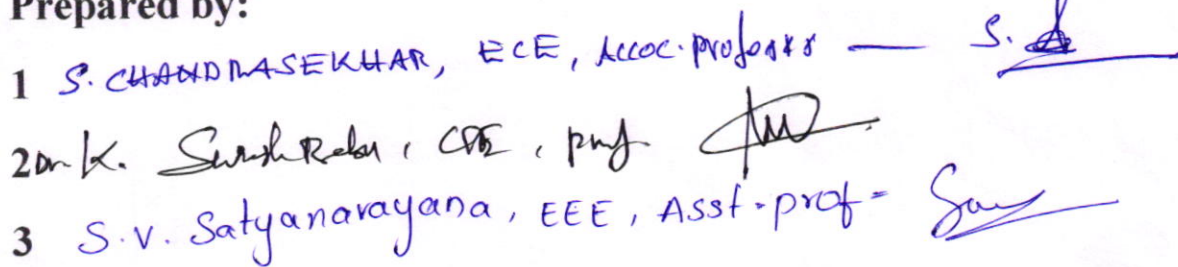 Prepared by:
1 S. CHANDRASEKHAR, ECE, Accoc. professor — S.
2 Dr. K. Suresh Babu, CSE, prof.
3 S.V. Satyanarayana, EEE, Asst. prof -